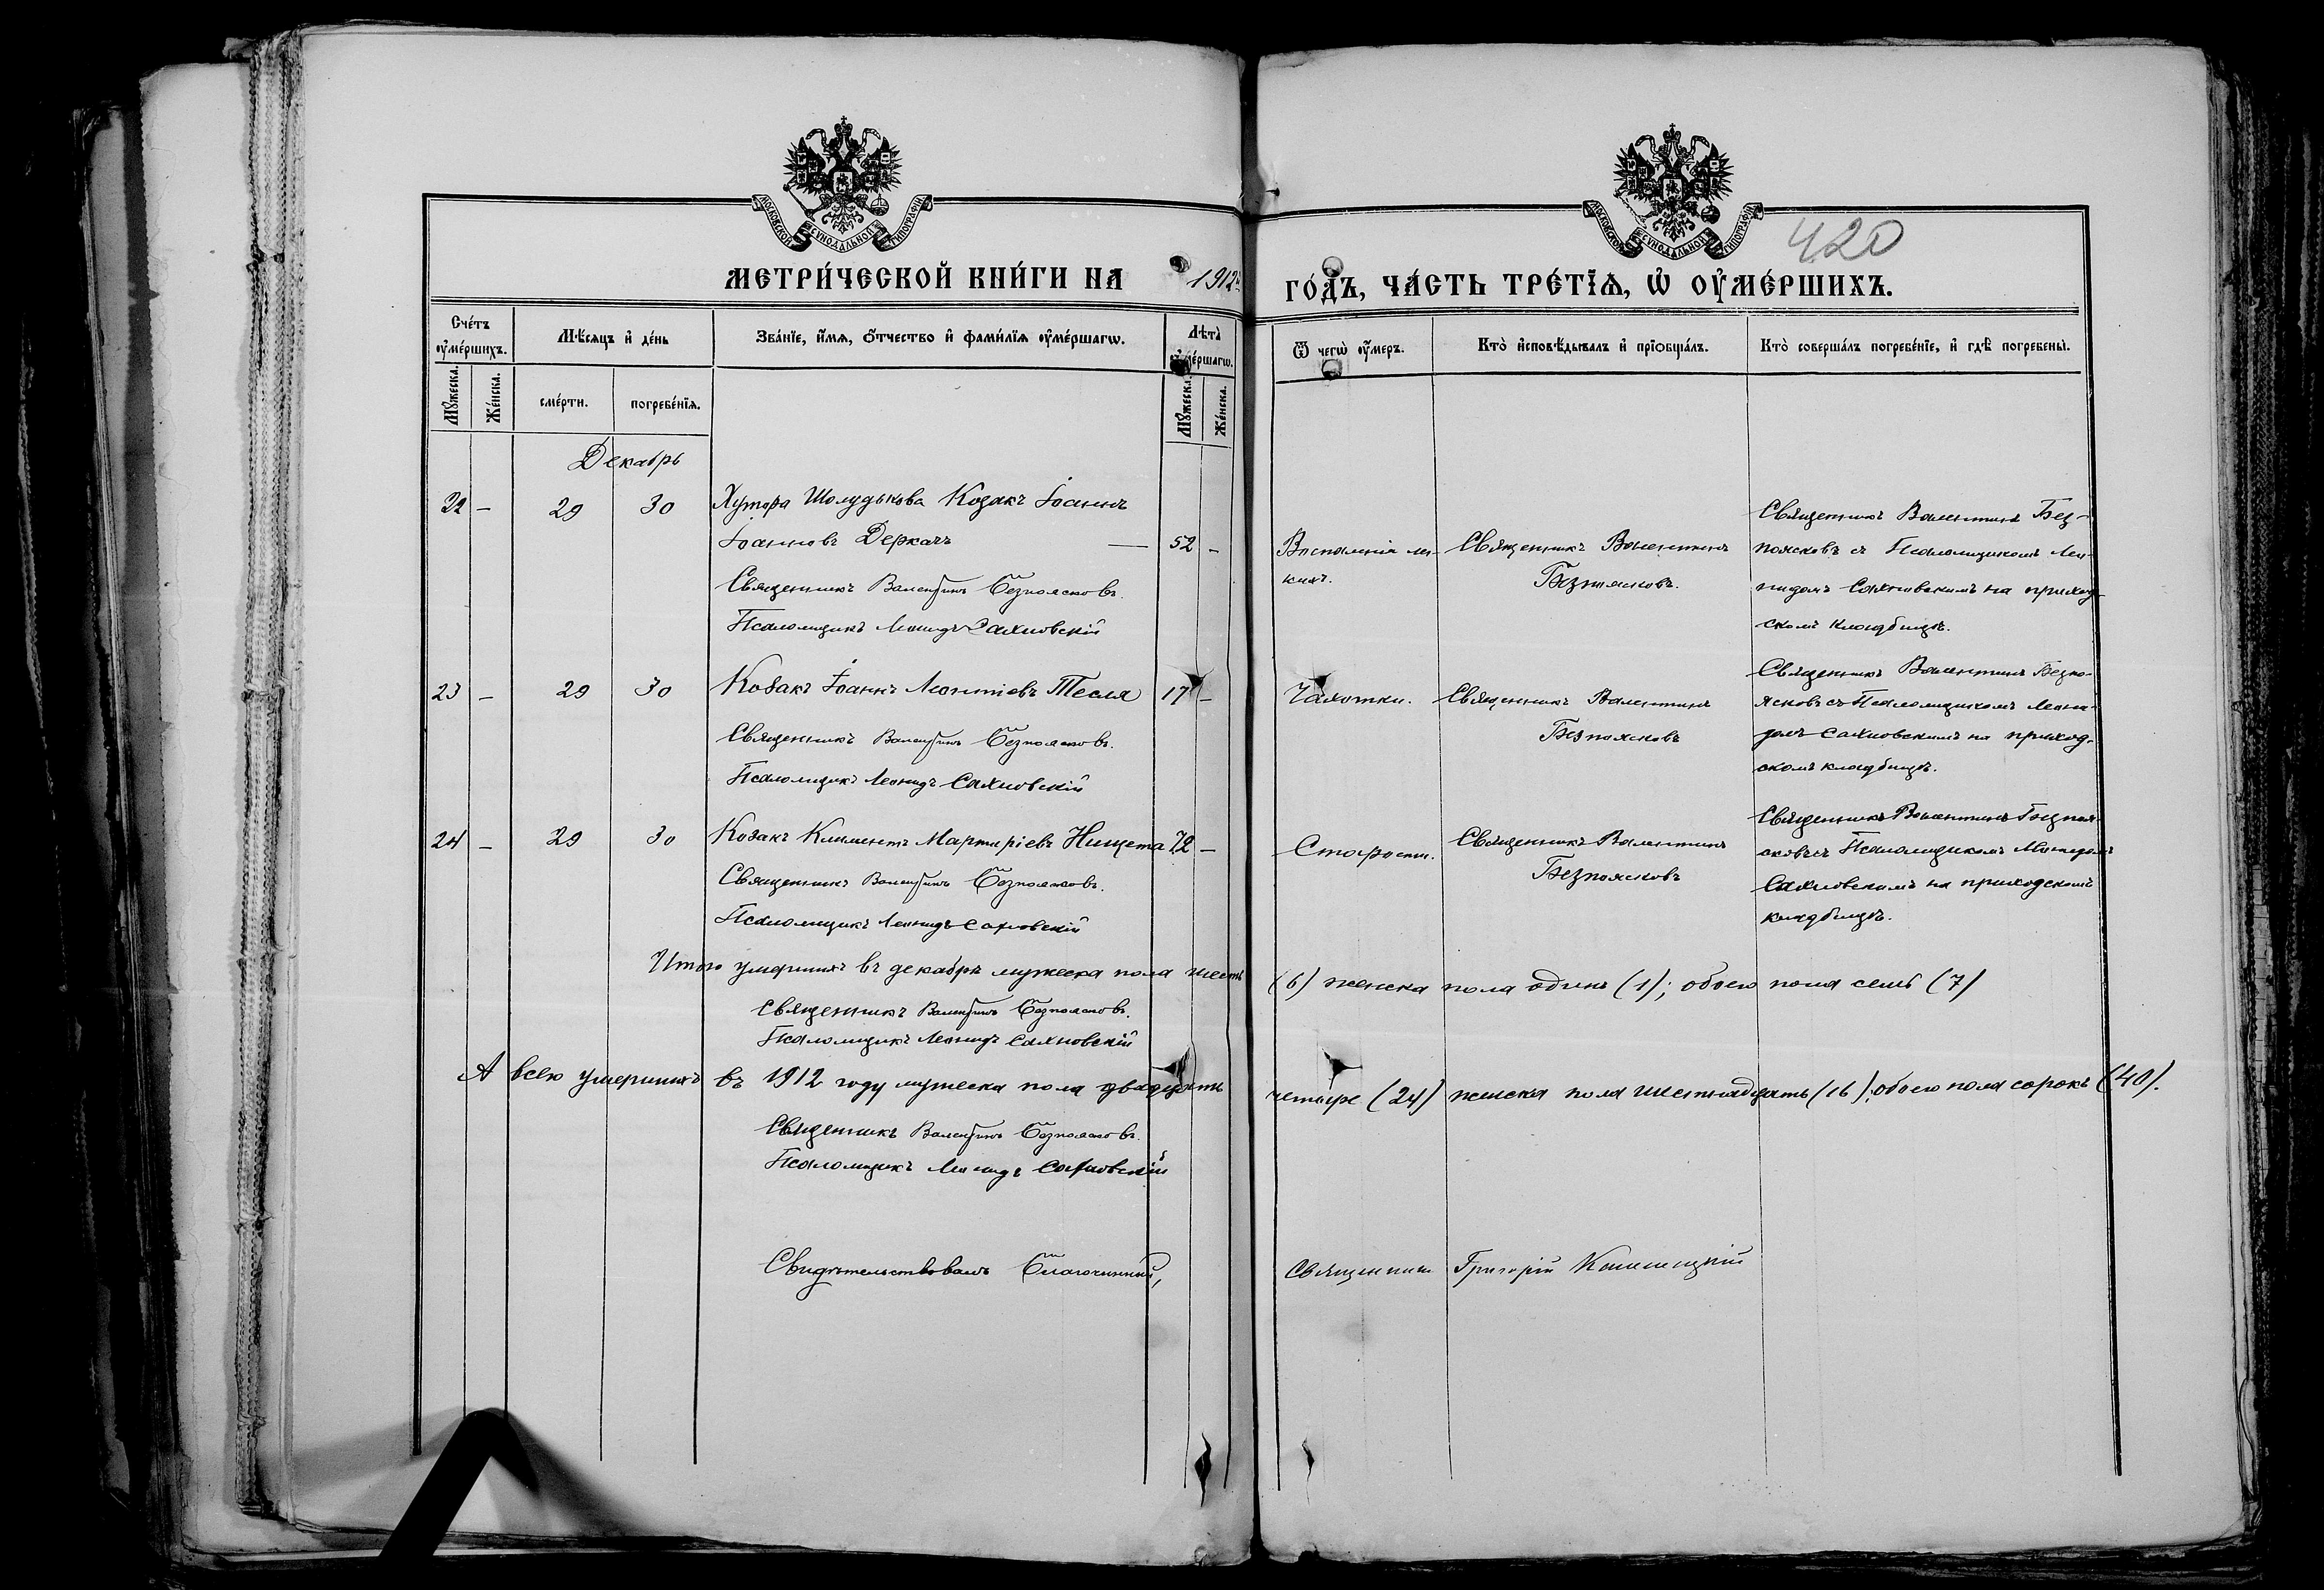 МОСКОВСКОЙ СѴНОДАЛЬНОЙ ТИПОГРАФІИ
МОСКОВСКОЙ СѴНОДАЛЬНОЙ ТИПОГРАФІИ
420
МЕТРИ́ЧЕСКОЙ КНИ́ГИ НА 1912 ГО́ДЪ, ЧА́СТЬ ТРЕ́ТІѦ, Ѡ҆ ОУ҆МЕ́РШИХЪ.
Сче́тъ оу҆ме́ршихъ.
Мꙋ́жеска.
Же́нска.
Мѣ́сяцъ и҆ де́нь
сме́рти.
погребе́нїѧ.
Зва́нїе, и҆́мѧ, ѻ҆́тчество и҆ фами́лїѧ оу҆ме́ршагѡ.
Лѣ́та оу҆ме́ршагѡ.
Мꙋ́жеска.
Же́нска.
Ѿ чегѡ̀ оу҆́меръ.
Кто̀ и҆сповѣ́дывалъ и҆ прїѡбща́лъ.
Кто̀ соверша́лъ погребе́нїе, и҆ гдѣ̀ погребены̀.
Декабрь
22 — 29 30 Хутора Шолудькова Козакъ Іоаннъ
Іоанновъ Деркачъ — 52 —
Священникъ Валентинъ Безпоясковъ.
Псаломщикъ Леонидъ Сахновскій
Воспаленія лег-
кихъ.
Священникъ Валентинъ
Безпоясковъ.
Священникъ Валентинъ Без-
поясковъ съ Псаломщикомъ Лео-
нидомъ Сахновскимъ на приход-
скомъ кладбищѣ.
23 — 29 30 Козакъ Іоаннъ Леонтіевъ Тесля 17 —
Священникъ Валентинъ Безпоясковъ.
Псаломщикъ Леонидъ Сахновскій
Чахотки.
Священникъ Валентинъ
Безпоясковъ
Священникъ Валентинъ Безпо-
ясковъ съ Псаломщикомъ Леони-
домъ Сахновскимъ на приход-
скомъ кладбищѣ.
24 — 29 30 Козакъ Климентъ Мартиріевъ Нищета 72 —
Священникъ Валентинъ Безпоясковъ.
Псаломщикъ Леонидъ Сахновскій
Старости.
Священникъ Валентинъ
Безпоясковъ
Священникъ Валентинъ Безпоя-
сковъ съ Псаломщикомъ Леонидомъ
Сахновскимъ на приходскомъ
кладбищѣ.
Итого умершихъ въ декабрѣ мужеска пола шесть (6) женска пола одинъ (1); обоего пола семь (7)
Священникъ Валентинъ Безпоясковъ.
Псаломщикъ Леонидъ Сахновскій
А всего умершихъ въ 1912 году мужеска пола двадцать четыре (24) женска пола шестнадцать (16), обоего пола сорокъ (40).
Священникъ Валентинъ Безпоясковъ.
Псаломщикъ Леонидъ Сахновскій
Свидѣтельствовалъ Благочинный, Священникъ Григорій